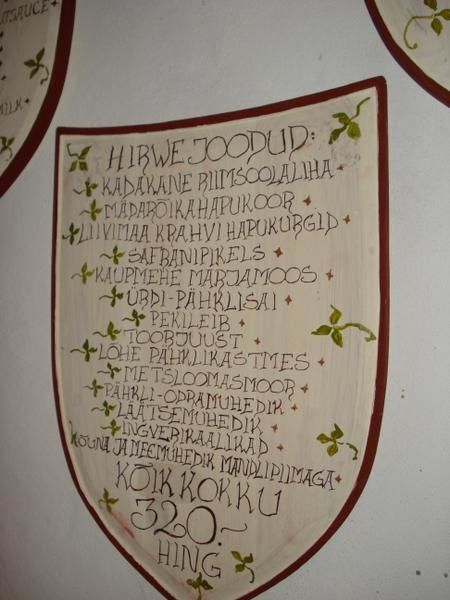 UTSAUCE
MILK
HIRWE JOODUD:
KADAKANE RIIMSOOLALIHA
MÄDARÕIKAHAPUKOOR
LIIVIMAA KRAHVI HAPUKURGID
SAFRANIPIKELS
KAUPMEHE MARJAMOOS
ÜRDI-PÄHKLISAI
PEKILEIB
TOORJUUST
LÕHE PÄHKLIKASTMES
METSLOOMASMOOR
PÄHKLI-ODRAMUHEDIK
LÄÄTSEMUHEDIK
INGVERIKAALIKAD
KÕUNA JA MEEMUHEDIK MANDLIPIIMAGA
KÕIK KOKKU
320.~
HING